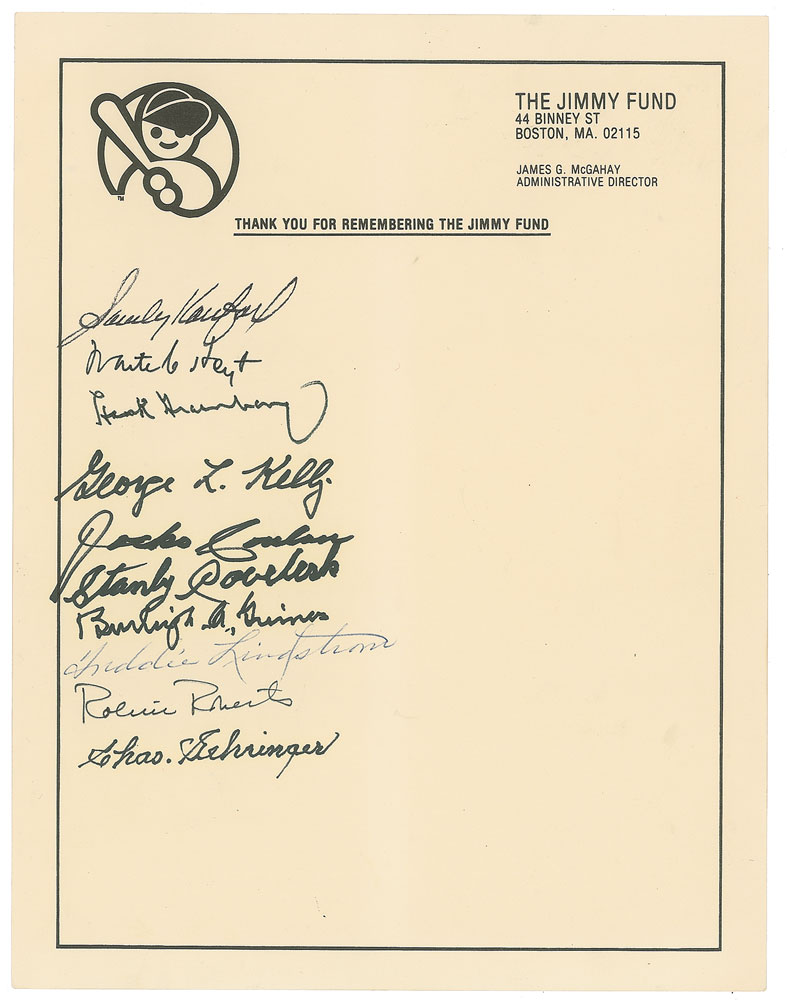 THE JIMMY FUND
44 BINNEY ST
BOSTON, MA. 02115
JAMES G. McGAHAY
ADMINISTRATIVE DIRECTOR
TM
THANK YOU FOR REMEMBERING THE JIMMY FUND
Sandy Koufax
Waite C Hoyt
Hank Greenberg
George L. Kelly
Jocko Conlan
Stanly Coveleski
Burleigh A. Grimes
Freddie Lindstrom
Robin Roberts
Chas. Gehringer